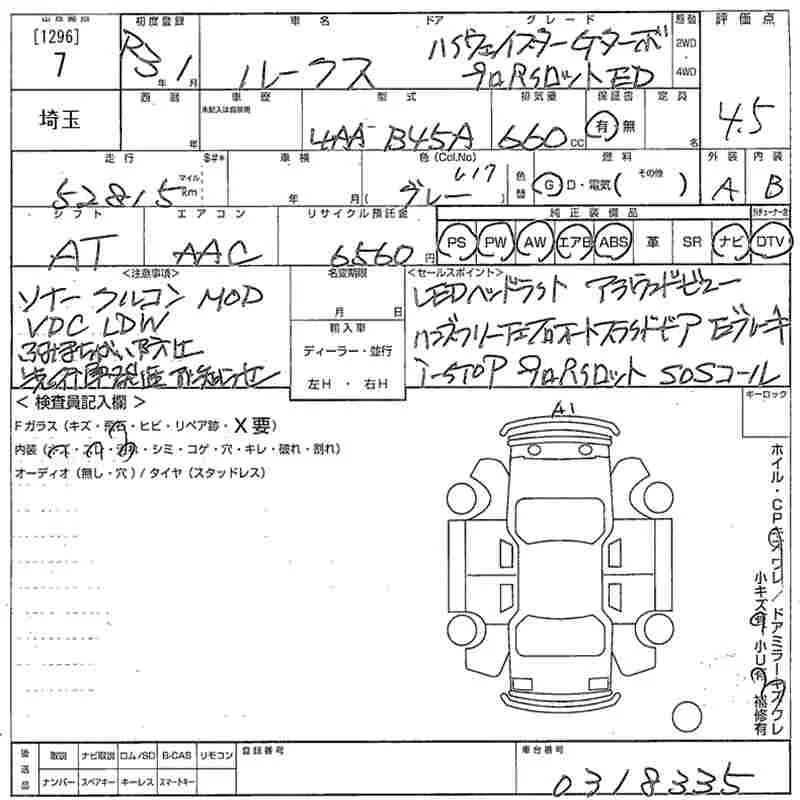 [1296]
7
初度登録
R3年1月
車名
ルークス
ドア
グレード
ハイウェイスターGターボ
プロパイロットED
駆動
2WD
4WD
評価点
4.5
埼玉
西暦
年
車歴
未記入は自家用
型式
4AA-B45A
排気量
660cc
保証書
有・無
定員
名
走行
52815
マイル
Km
車検
年 月
色(Col.No)
グレー
色替
燃料
G・D・電気(その他)
外装
A
内装
B
シフト
AT
エアコン
AAC
リサイクル預託金
6560円
純正装備品
PS PW AW エアB ABS 革 SR ナビ DTV
<注意事項>
ソナー フルコン MOD
VDC LDW
ふみまちがい防止
先行車発進お知らせ
名変期限
月 日
輸入車
ディーラー・並行
左H・右H
<セールスポイント>
LEDヘッドライト アラウンドビュー
ハンズフリー両オートスライドドア Eブレーキ
i-STOP プロパイロット SOSコール
<検査員記入欄>
Fガラス(キズ・飛石・ヒビ・リペア跡・X要)
・シミ・コゲ・穴・キレ・破れ・割れ)
オーディオ(無し・穴)/タイヤ(スタッドレス)
A1
キーロック
ホイル・CPキズワレ/ドアミラーキズワレ
小キズ有 小U有 補修有
後送品
取説 ナビ取説 ロム/SD B-CAS リモコン
ナンバー スペアキー キーレス スマートキー
登録番号
車台番号
0318335